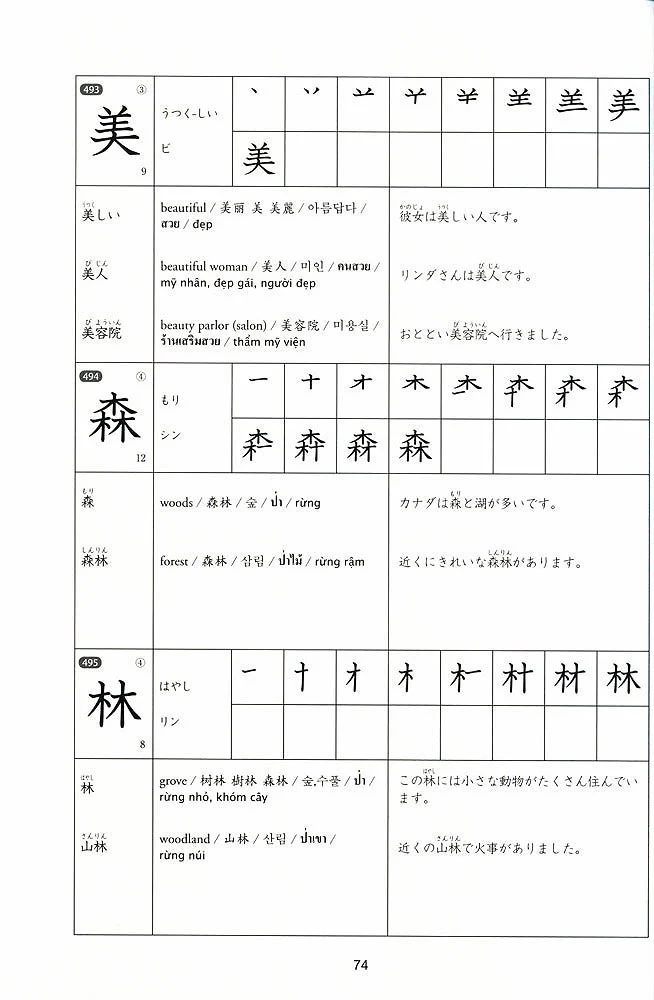 493 ③
美
9
うつく-しい
ビ
丶 丷 䒑 美
美しい
うつく
beautiful / 美丽 美 美麗 / 아름답다 /
สวย / đẹp
かのじょ うつく
彼女は美しい人です。
びじん
美人
beautiful woman / 美人 / 미인 / คนสวย /
mỹ nhân, đẹp gái, người đẹp
びじん
リンダさんは美人です。
びよういん
美容院
beauty parlor (salon) / 美容院 / 미용실 /
ร้านเสริมสวย / thẩm mỹ viện
びよういん
おととい美容院へ行きました。
494 ④
森
12
もり
シン
一 十 オ 木
森
もり
森
woods / 森林 / 숲 / ป่า / rừng
もり
カナダは森と湖が多いです。
しんりん
森林
forest / 森林 / 삼림 / ป่าไม้ / rừng rậm
しんりん
近くにきれいな森林があります。
495 ④
林
8
はやし
リン
一 十 オ 木 村 材 林
はやし
林
grove / 树林 樹林 森林 / 숲,수풀 / ป่า /
rừng nhỏ, khóm cây
はやし
この林には小さな動物がたくさん住んでい
ます。
さんりん
山林
woodland / 山林 / 산림 / ป่าเขา /
rừng núi
さんりん
近くの山林で火事がありました。
74